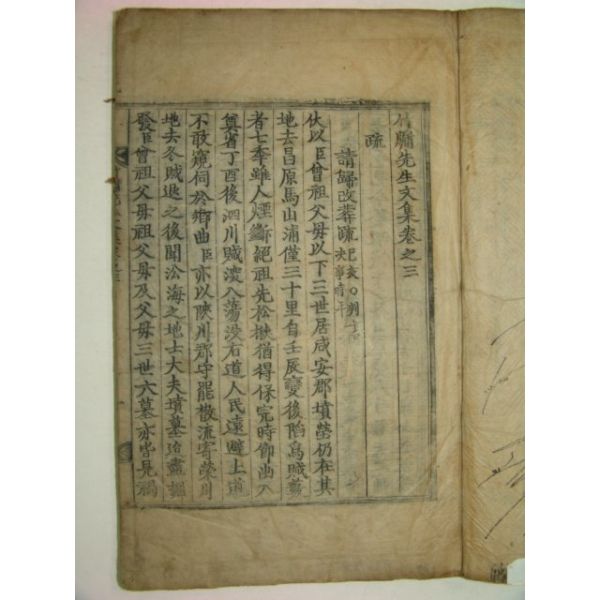 竹牖先生文集卷之三
疏
請歸改葬疏 己亥
伏以臣曾祖父母以下三世居咸安郡墳塋仍在其
地去昌原馬山浦僅三十里自壬辰變後陷爲賊藪
者七年雖人煙斷絕祖先松楸猶得保完時節幽入
奠省丁酉後泗川賊浸入蕩沒右道人民遠避上道
不敢窺伺於鄕曲臣亦以陜川郡守罷散流寄榮川
地去冬賊退之後聞沿海之地士大夫墳墓殆盡掘
發臣曾祖父母祖父母及父母三世六墓亦皆見掘